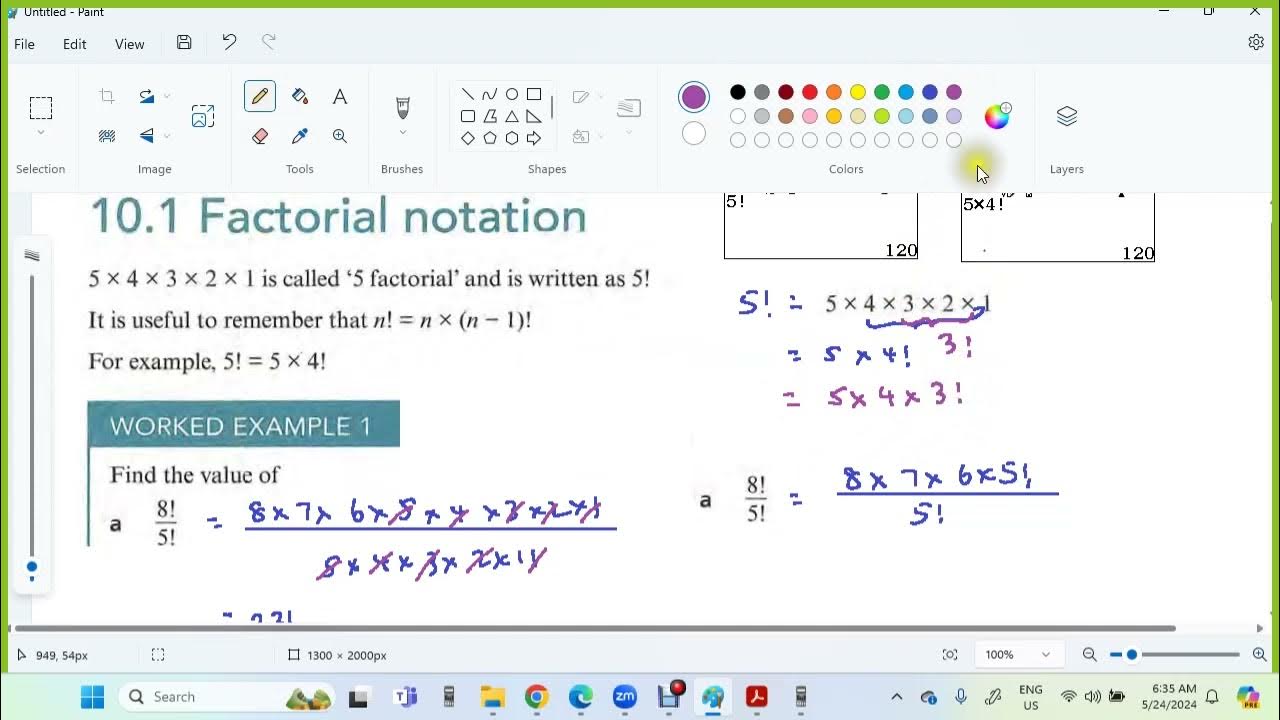 Untitled - Paint
File Edit View
Selection Image Tools Brushes Shapes Colors Layers
10.1 Factorial notation
5 × 4 × 3 × 2 × 1 is called ‘5 factorial’ and is written as 5!
It is useful to remember that n! = n × (n − 1)!
For example, 5! = 5 × 4!
WORKED EXAMPLE 1
Find the value of
a 8!/5! = 8 × 7 × 6 × 5 × 4 × 3 × 2 × 1
5!
120
5×4!
120
5! = 5 × 4 × 3 × 2 × 1
= 5 × 4! 3!
= 5 × 4 × 3!
a 8!/5! = 8 × 7 × 6 × 5! / 5!
949, 54px
1300 × 2000px
100%
Search
zm
ENG
US
6:35 AM
5/24/2024
PRE